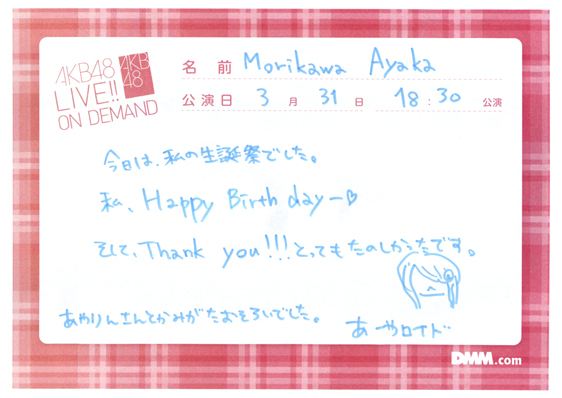 AKB48
LIVE!!
ON DEMAND
AKB
48
名前 Morikawa Ayaka
公演日 3月31日 18:30公演
今日は、私の生誕祭でした。
私、Happy Birthday〜♡
そして、Thank you!!!とってもたのしかったです。
あやりんさんとかみがたおそろいでした。
あやロイド
DMM.com